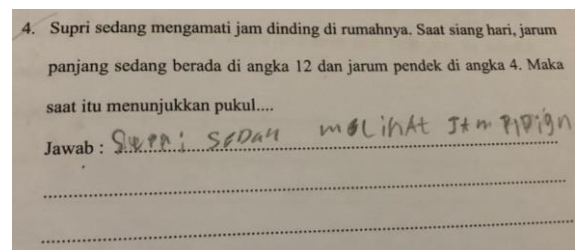 4. Supri sedang mengamati jam dinding di rumahnya. Saat siang hari, jarum
panjang sedang berada di angka 12 dan jarum pendek di angka 4. Maka
saat itu menunjukkan pukul....
Jawab : Supri SEDAN meLihAt JAm PiDign